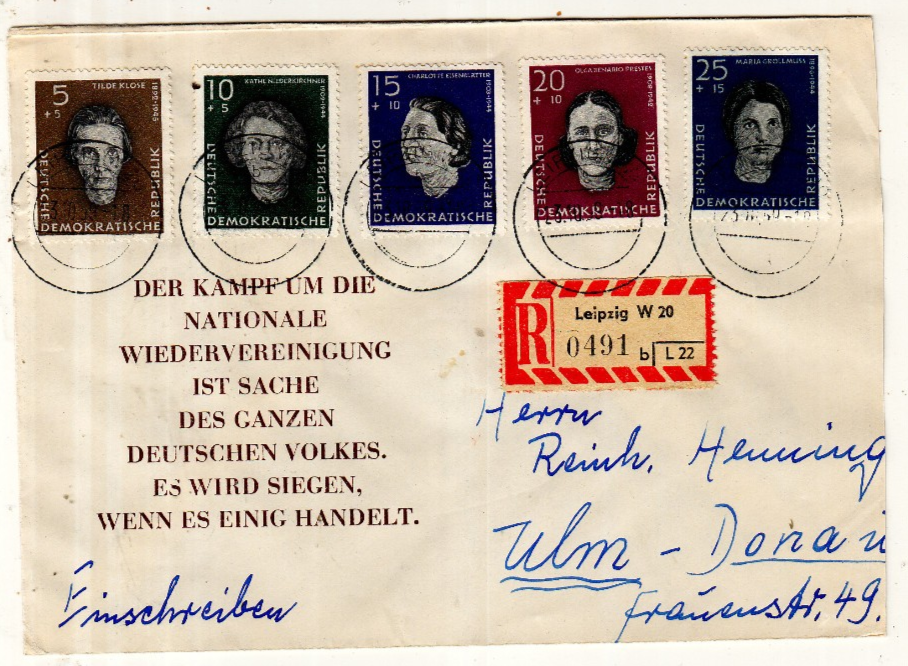 5
+5
TILDE KLOSE
DEUTSCHE
DEMOKRATISCHE
REPUBLIK
10
+5
KÄTHE NIEDERKIRCHNER
DEUTSCHE
DEMOKRATISCHE
REPUBLIK
15
+10
CHARLOTTE EISENBLÄTTER
1903-1944
DEUTSCHE
DEMOKRATISCHE
REPUBLIK
20
+10
OLGA BENARIO PRESTES
1908-1942
DEUTSCHE
DEMOKRATISCHE
REPUBLIK
25
+15
MARIA GROLLMUSS
DEUTSCHE
DEMOKRATISCHE
REPUBLIK
DER KAMPF UM DIE
NATIONALE
WIEDERVEREINIGUNG
IST SACHE
DES GANZEN
DEUTSCHEN VOLKES.
ES WIRD SIEGEN,
WENN ES EINIG HANDELT.
R
Leipzig W 20
0491 b L 22
Herrn
Reinh. Henning
Ulm - Donau
Frauenstr. 49.
Einschreiben